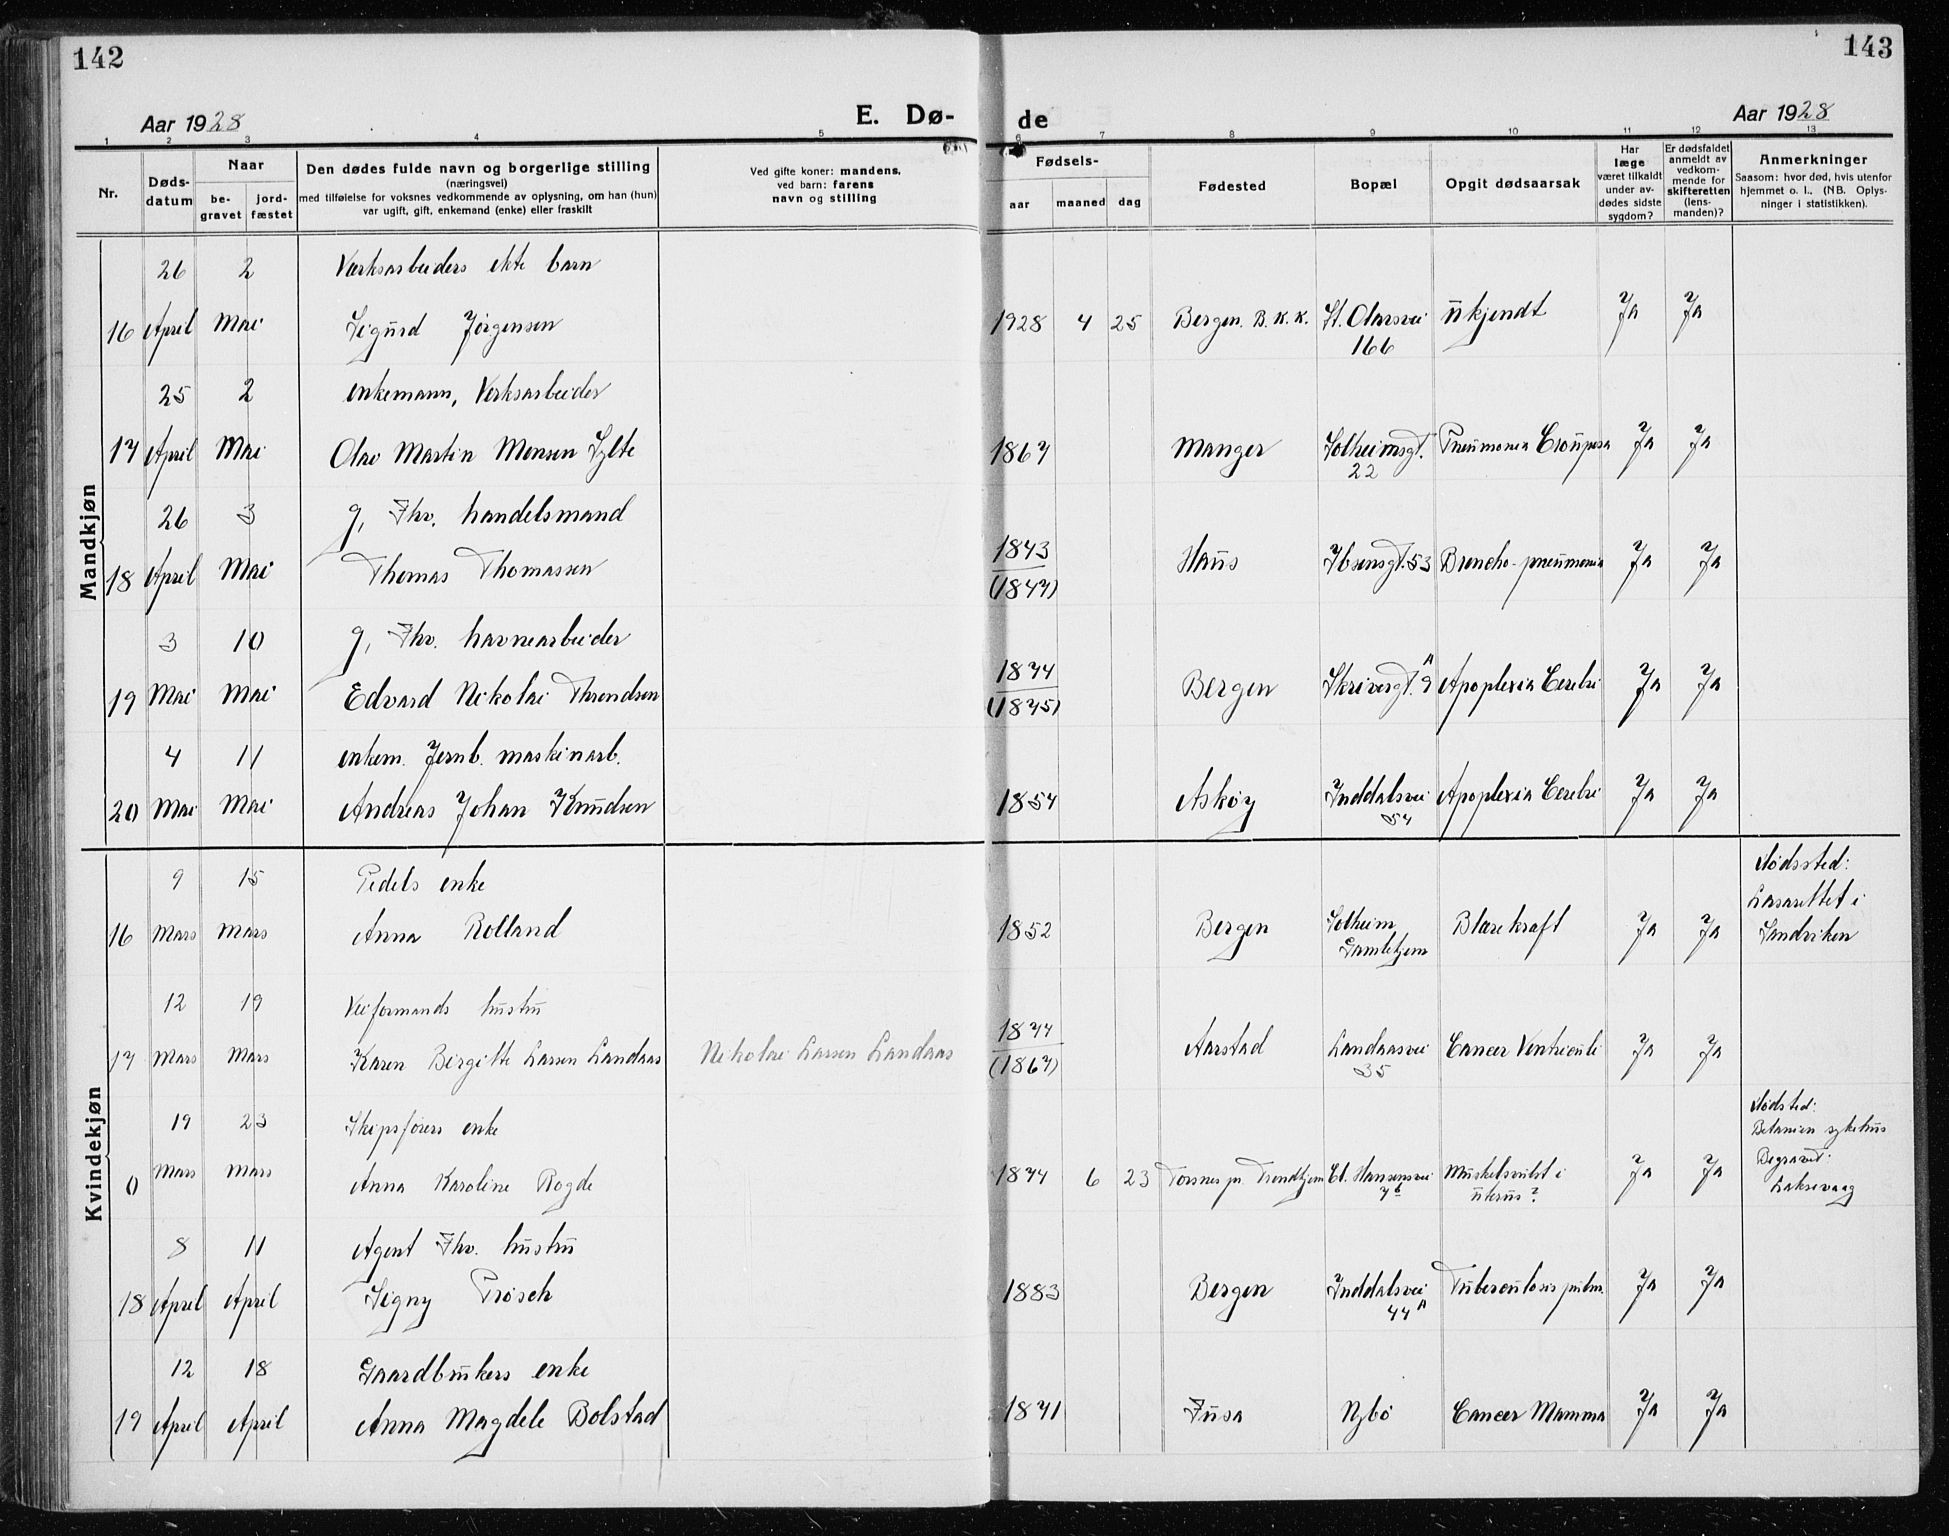 142
143
Aar 1928
E. Dø-
de
Aar 1928
1 2 3 4 5 6 7 8 9 10 11 12 13
Nr.
Døds-
datum
Naar
be-
gravet
jord-
fæstet
Den dødes fulde navn og borgerlige stilling
(næringsvei)
med tilføielse for voksnes vedkommende av oplysning, om han (hun)
var ugift, gift, enkemand (enke) eller fraskilt
Ved gifte koner: mandens,
ved barn: farens
navn og stilling
Fødsels-
aar maaned dag
Fødested
Bopæl
Opgit dødsaarsak
Har
læge
været tilkaldt
under av-
dødes sidste
sygdom?
Er dødsfaldet
anmeldt av
vedkom-
mende for
skifteretten
(lens-
manden)?
Anmerkninger
Saasom: hvor død, hvis utenfor
hjemmet o. l., (NB. Oplys-
ninger i statistikken).
Mandkjøn
26 2 Verksarbeiders ekte barn
16 April Mai Sigurd Jörgensen 1928 4 25 Bergen. B. K. K. St. Olavsvei ukjendt Ja Ja
166
25 2 enkemann, Verksarbeider
17 April Mai Olav Martin Monsen Sylte 1867 Manger Solheimsgt. Pneumonia Crouposa Ja Ja
22
26 3 g, Fhv. handelsmand
18 April Mai Thomas Thomassen 1843 Haus Ibsensgt. 53 Broncho-pneumonia Ja Ja
(1847)
3 10 g, Fhv. havnearbeider
19 Mai Mai Edvard Nikolai Throndsen 1874 Bergen Skrivergt. 9 A Apoplexia Cerebri Ja Ja
(1875)
4 11 enkem. Jernb. maskinarb.
20 Mai Mai Andreas Johan Knudsen 1854 Askøy Inddalsvei Apoplexia Cerebri Ja Ja
54
Kvindekjøn
9 15 Pedels enke
16 Mars Mars Anna Rolland 1852 Bergen Solheim Blærekraft Ja Ja
Gamlehjem
Dødssted:
Lasarettet i
Sandviken
12 19 Veiformands hustru
17 Mars Mars Karen Birgitte Larsen Landaas Nikolai Larsen Landaas 1877 Aarstad Landaasvei Cancer Ventriculi Ja Ja
(1867) 35
19 23 Skipsførers enke
0 Mars Mars Anna Karoline Rogde 1874 6 23 Torsnes pr. Trondhjem Hansensvei Muskelsvulst i Ja Ja
7 b uterus?
Dødsted:
Betanien sykehus
Begravet:
Laksevaag
8 11 Agent Fhv. hustru
18 April April Signy Prösch 1883 Bergen Inddalsvei Tuberculosis pulm. Ja Ja
44 A
12 18 Gaardbrukers enke
19 April April Anna Magdele Bolstad 1841 Fusa Nybö Cancer Mamma Ja Ja